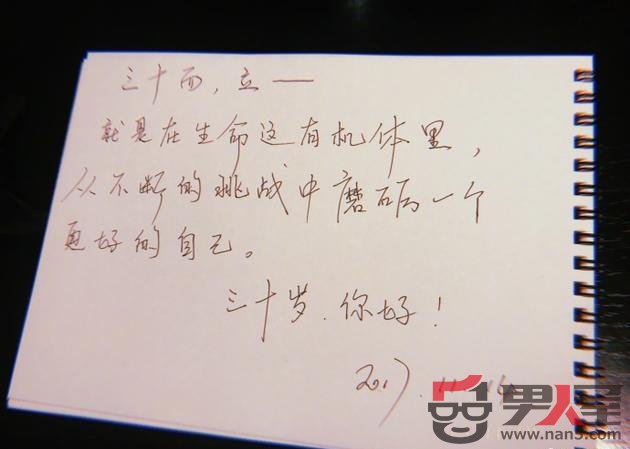 三十而,立——
就是在生命这有机体里,
从不断的挑战中磨砺一个
更好的自己。
三十岁,你好!
2017.11.
男人窝
www.nan3.com